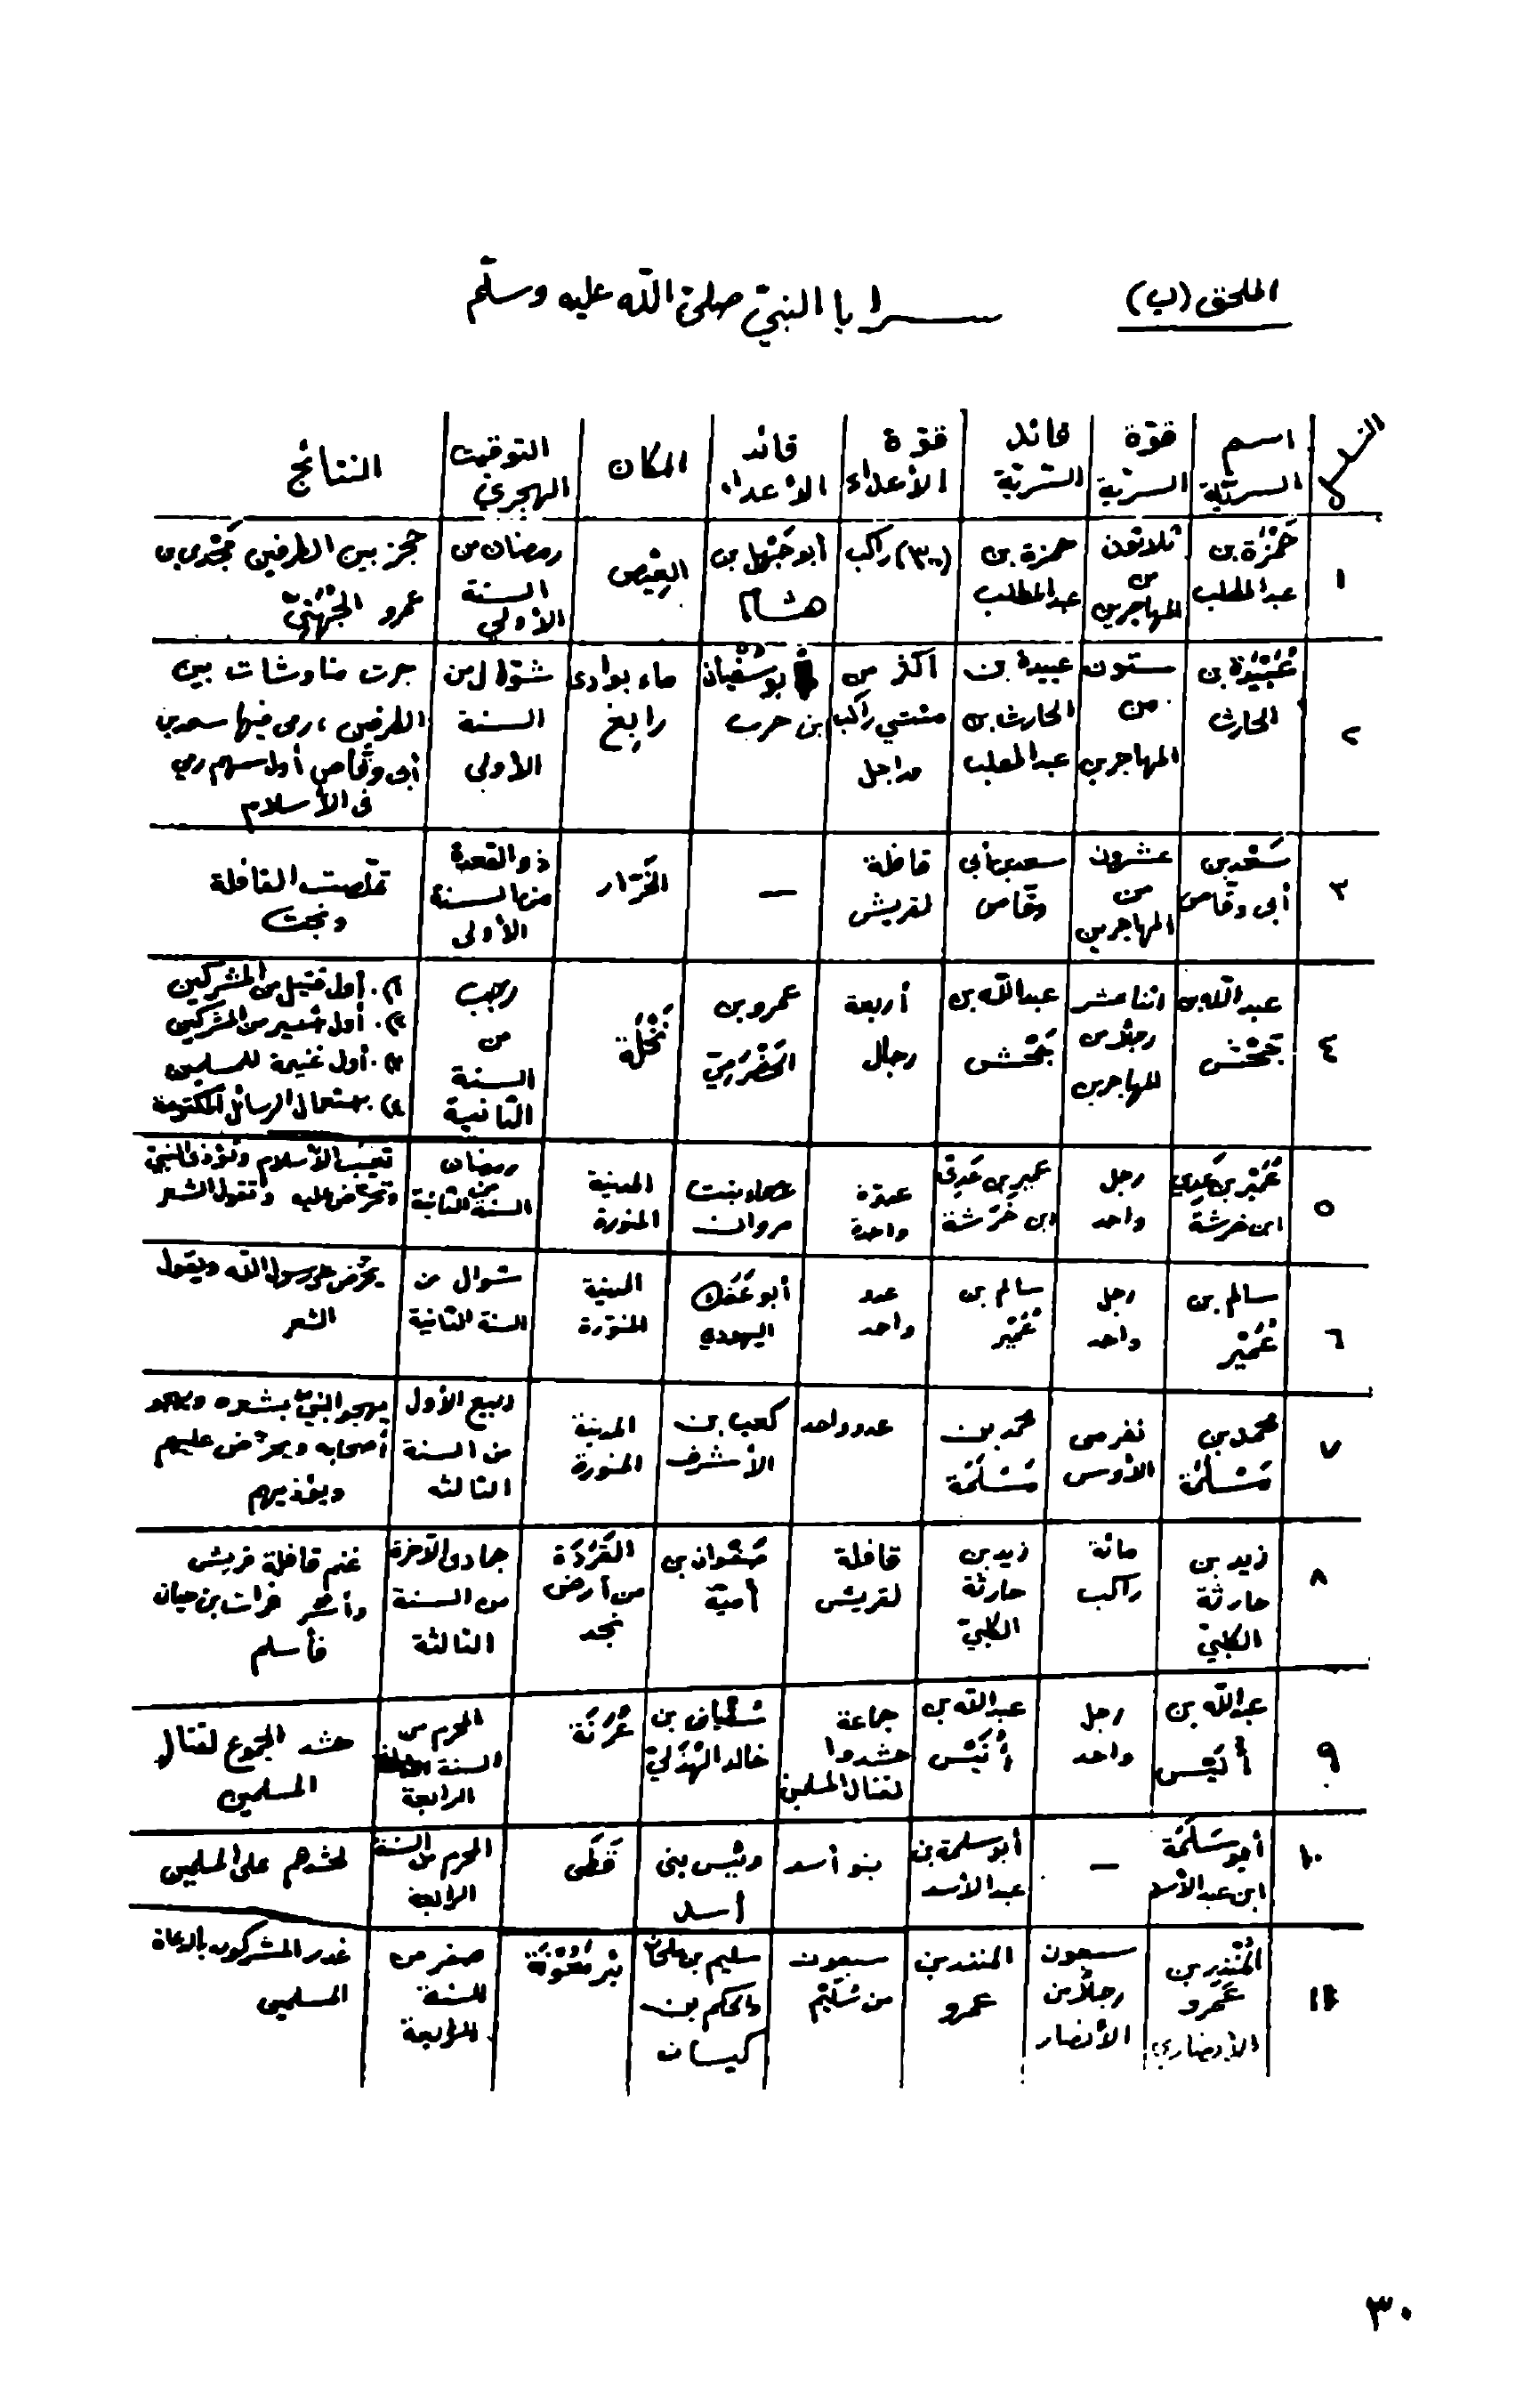 الملحق (ب)
سرايا النبيّ صلى الله عليه وسلّم
التسلسل | اسم السريّة | قوّة السريّة | قائد السّريّة | قوّة الأعداء | قائد الأعداء | المكان | التوقيت الهجريّ | النتائج
١ | حَمْزَة بن عبد المطلب | ثلاثون من المهاجرين | حمزة بن عبد المطلب | (٣٠٠) راكب | أبو جَهْل بن هشام | العِيْص | رمضان من السنة الأولى | حجز بين الطرفين مَجْدي بن عمرو الجُهَنيّ
٢ | عُبَيْدَة بن الحارث | ستون من المهاجرين | عبيدة بن الحارث بن عبد المطلب | اكثر من مئتي راكب وراجل | أبو سُفْيان بن حرب | ماء بوادي رابِغ | شوّال من السنة الأولى | جرت مناوشات بين الطرفين ، رمى فيها سعد بن أبي وقّاص أول سهم رمي في الأسلام
٣ | سَعْد بن أبي وقّاص | عشرون من المهاجرين | سعد بن أبي وقّاص | قافلة لقريش | — | الخَرّار | ذو القعدة من السنة الأولى | تملصت القافلة ونجت
٤ | عبد الله بن جَحْش | اثنا عشر رجلاً من المهاجرين | عبد الله بن جَحْش | أربعة رجال | عمرو بن الحَضْرَميّ | نَخْلَة | رجب من السنة الثانية | ١). أول قتيل من المشركين ٢). أول أسير من المشركين ٣). أول غنيمة للمسلمين ٤). استعمال الرسائل المكتومة
٥ | عُمَيْر بن عَدِيّ ابن خرشة | رجل واحد | عمير بن عَدِيّ ابن خَرَشة | عدوّة واحدة | عصماء بنت مروان | المدينة المنورة | رمضان من السنة الثانية | تعيب الأسلام وتؤذي النبيّ وتحرّض عليه وتقول الشعر
٦ | سالم بن عُمَيْر | رجل واحد | سالم بن عُمَيْر | عدو واحد | أبو عَفَك اليهودي | المدينة المنوّرة | شوال من السنة الثانية | يحرّض على رسول الله ويقول الشعر
٧ | محمد بن مَسْلَمَة | نفر من الأوس | محمد بن مَسْلَمَة | عدو واحد | كعب بن الأشرف | المدينة المنورة | ربيع الأول من السنة الثالثة | يهجو النبيّ بشعره ويهجو أصحابه ويحرّض عليهم ويؤذيهم
٨ | زيد بن حارثة الكلبيّ | مائة راكب | زيد بن حارثة الكلبيّ | قافلة لقريش | صَفْوان بن أميّة | القَرَدَة من أرض نجد | جمادى الآخرة من السنة الثالثة | غنم قافلة قريش وأسر فرات بن حيان فأسلم
٩ | عبد الله بن أُنَيْس | رجل واحد | عبد الله بن أُنَيْس | جماعة حشدوا لقتال المسلمين | سُفْيان بن خالد الهُذَليّ | عُرَنَة | المحرم من السنة الرابعة | حشد الجموع لقتال المسلمين
١٠ | أبو سَلَمَة ابن عبد الأسد | — | أبو سلمة بن عبد الأسد | بنو أسد | رئيس بني أسد | قَطَن | المحرم من السنة الرابعة | لحشدهم على المسلمين
١١ | المُنْذِر بن عَمْرو الأنصاري | سبعون رجلاً من الأنصار | المنذر بن عمرو | سبعون من سُلَيْم | سليم بن ملحان والحكم بن كيسان | بئر مَعُوْنَة | صفر من السنة الرابعة | غدر المشركون بالدعاة المسلمين
٣٠